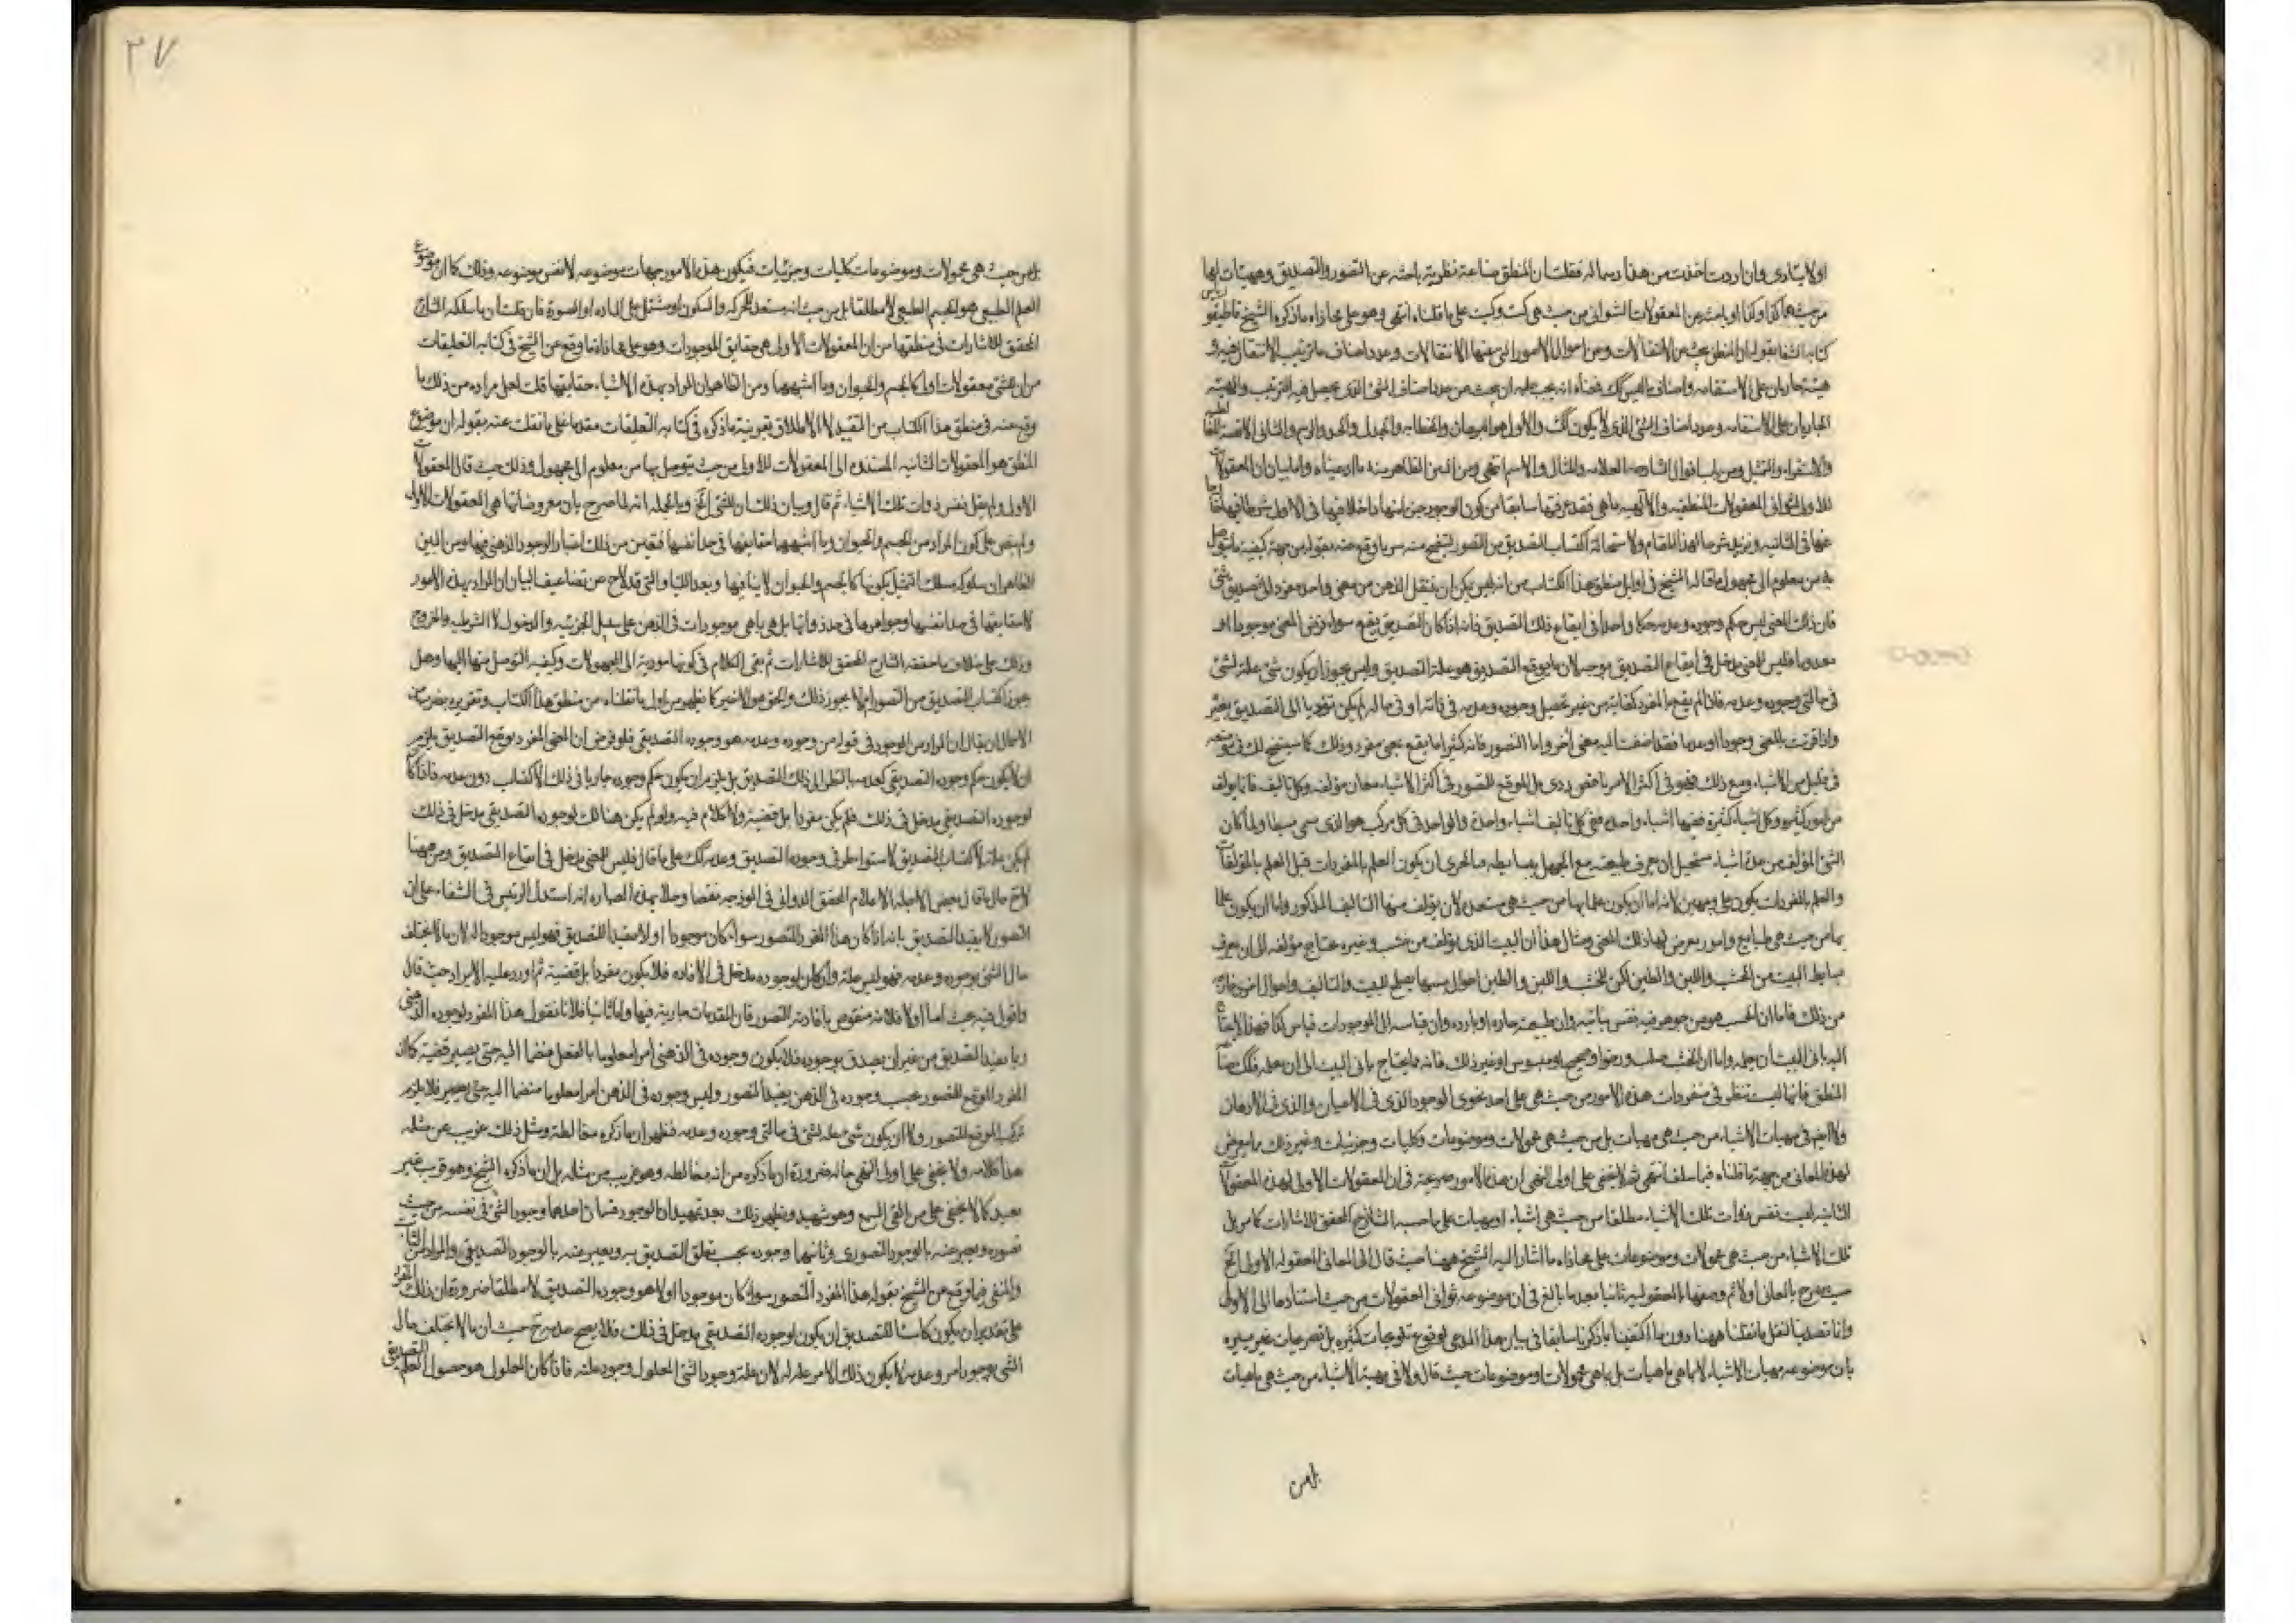 اولايتادى وان اردت اخذت من هذا رسما له فقلت ان المنطق صناعة نظرية باحثة عن التصور والتصديق وهيئات
من حيث هما كذا وكذا او باحث من المعقولات الثوانى من حيث هى كيت وكيت على ما قلناه انتهى وهو على محاذاه ما ذكره الشيخ
كتاب الشفا بقوله ان المنطق يبحث عن الانتقالات ومن احوال الامور التى منها الانتقالات وعدد اصناف ما ترتيب الانتقال فيه و
هيئته جاريان على الاستقامه واصناف ما ليس كك فمعناه انه يجب عليه ان يبحث عن عدد اصناف الشئ الذى يحصل فيه الترتيب والهيئه
الجاريان على الاستقامه وعدد اصناف الشئ الذى لا يكون كك والاول هو البرهان والخطابه والجدل والحد والرسم والثانى الاقيسه
والاستقراء والتمثيل ومن باب اقوال الشارحه العلامه والمثال والاسم انتهى ومن البين الظاهر منه ما ادعيناه واما بيان ان المعقولات
للاولى الثوانى المعقولات المنطقيه والالهيه ما هى فقد عرفتها سابقا من كون الوجود حين انها داخلا فيها فى الاولى شرطا فيها
عنها فى الثانيه ونزيد شرحا لهذا المقام ولاستحالة اكتساب التصديق من التصور ليتضح منه سر ما وقع عنه بقوله من جهة كيفية ما يتوصل
به من معلوم الى مجهول ما قاله الشيخ فى اوايل منطق هذا الكتاب من انه ليس يمكن ان ينتقل الذهن من معنى واحد مفرد الى تصديق شئ
فان ذلك المعنى ليس حكم وجوده وعدمه حكما واحدا فى ايقاع ذلك التصديق فانه اذا كان التصديق يقع سواء فرض المعنى موجودا او
معدوما فليس للمعنى مدخل فى ايقاع التصديق بوجه لان ما يوقع التصديق هو علة التصديق وليس يجوز ان يكون شئ علة لشئ
فى حالتى وجوده وعدمه فاذا لم يقع بالمفرد كفاية من غير تحصيل وجوده وعدمه فى ذاته او فى حاله لم يكن مؤديا الى التصديق بغيره
واذا قرنت بالمعنى وجودا او عدما فقد اضفت اليه معنى اخر واما التصور فانه كثيرا ما يقع بمعنى مفرد وذلك كما سيتضح لك فى موضعه
فى قليل من الاشياء ومع ذلك فهو فى اكثر الامر ناقص ردى بل الموقع للتصور فى اكثر الاشياء معان مؤلفه وكل تاليف فانما يولف
من امور كثيره وكل اشياء كثيرة ففيها اشياء واحده ففى كل تاليف اشياء واحدة والواحد فى كل مركب هو الذى يسمى بسيطا ولما كان
الشئ المؤلف من عدة اشياء يستحيل ان يعرف طبيعته مع الجهل ببسايطه فبالحرى ان يكون العلم بالمفردات قبل العلم بالمؤلفات
والعلم بالمفردات يكون على وجهين لانه اما ان يكون علما بها من حيث هى مستعدة لان يؤلف منها التاليف المذكور واما ان يكون علما
بها من حيث هى طبايع وامور يعرض لها ذلك المعنى ومثال هذا ان البيت الذى يؤلف من خشب وغيره يحتاج مؤلفه الى ان يعرف
بسايط البيت من الخشب واللبن والطين لكن للخشب واللبن والطين احوال بسببها يصلح للبيت والتاليف واحوال اخرى خارجة
من ذلك فاما ان الخشب هو من جوهر فيه نفس نباتيه وان طبيعته حاره او بارده وان قياسه الى الموجودات قياس كذا فهذا لا يحتاج
اليه بانى البيت ان يعلمه واما ان الخشب صلب ورخو او صحيح او مسوس او غير ذلك فانه مما يحتاج بانى البيت الى ان يعلمه فكك صناعة
المنطق فانها ليست تنظر فى مفردات هذه الامور من حيث هى على احد نحوى الوجود الذى فى الاعيان والذى فى الاذهان
ولا ايضا فى مهيات الاشياء من حيث هى مهيات بل من حيث هى محمولات وموضوعات وكليات وجزئيات وغير ذلك مما يعرض
لهذه المعانى من جهة ما قلناه فيما سلف انتهى ثم لا يخفى على اولى النهى ان هذه الامور صريحة فى ان المعقولات الاولى لهذه المعقولات
الثانيه ليست نفس ذوات تلك الاشياء مطلقا من حيث هى اشياء او مهيات على ما حسبه الشارح المحقق للاشارات كما مر بل
تلك الاشياء من حيث هى محمولات وموضوعات على محاذاه ما اشار اليه الشيخ ههنا حيث قال الى المعانى المعقوله الاولى الخ
حيث صرح بالمعانى اولا ثم وصفها بالمعقوليه ثانيا بعد ما بالغ فى ان موضوعه ثوانى المعقولات من حيث استنادها الى الاولى
وانا تصدينا النقل ما نقلنا ههنا دون ما اكتفينا بما ذكرنا سابقا فى بيان هذا المدعى لوقوع تلويحات كثيره بل تصريحات غير يسيره
بان موضوعه مهيات الاشياء لا بما هى ماهيات بل بما هى محمولات وموضوعات حيث قال ولا فى مهية الاشياء من حيث هى ماهيات
بل من
٣٧
بل من حيث هى محمولات وموضوعات كليات وجزئيات فيكون هذه الامور جهات موضوعه لا نفس موضوعه وذلك كما ان موضوع
العلم الطبيعى هو الجسم الطبيعى لا مطلقا بل من حيث انه مستعد للحركه والسكون او مشتمل على الماده او الصورة فان قلت ان ما سلكه الشارح
المحقق للاشارات فى منطقها من ان المعقولات الاولى هى حقايق الموجودات وهو على محاذاة ما وقع عن الشيخ فى كتابه التعليقات
من ان الشئ معقولات اولى كالجسم والحيوان وما اشبههما ومن الظاهر ان المراد بهذه الاشياء حقايقها قلت لعل مراده من ذلك ما
وقع عنه فى منطق هذا الكتاب من التقييد لا الاطلاق بقرينة ما ذكره فى كتابه التعليقات مقدما على ما نقلت عنه بقوله ان موضوع
المنطق هو المعقولات الثانيه المستنده الى المعقولات الاولى من حيث يتوصل بها من معلوم الى مجهول وذلك حيث قال المعقولات
الاولى ولم يقل نفس ذوات تلك الاشياء ثم قال وبيان ذلك ان للشئ الخ وبالجمله انه لما صرح بان معروضاتها هى المعقولات الاولى
ولم ينص على كون المراد من الجسم والحيوان وما اشبههما حقايقها فى حد انفسها فتعين من ذلك اعتبار الوجود الذهنى فيها ومن البين
الظاهر ان سلوكه مسلك التمثيل بكونها كالجسم والحيوان لا ينافيها وبعد اللتيا والتى قد لاح من تضاعيف البيان ان المراد بهذه الامور
لا حقايقها فى حد انفسها وجواهرها فى حد ذواتها بل هى بما هى موجودات فى الذهن على سبيل الجزئيه والدخول لا الشرطيه والخروج
وذلك على خلاف ما حققه الشارح المحقق للاشارات ثم بقى الكلام فى كونها مؤدية الى المجهولات وكيفيه التوصل منها اليها وهل
يجوز اكتساب التصديق من التصور ام لا يجوز ذلك والحق هو الاخير كما يظهر من اول ما نقلناه من منطق هذا الكتاب وتقريره بضرب من
الاجمال ان يقال ان المراد من الوجود فى قوله من وجوده وعدمه هو وجوده التصديقى فلو فرض ان المعنى المفرد يوقع التصديق يلزم
ان لا يكون حكم وجوده التصديقى كعدمه بالنظر الى ذلك التصديق بل يلزم ان يكون حكم وجوده جاريا فى ذلك الاكتساب دون عدمه فاذا كان
لوجوده التصديقى مدخل فى ذلك فلم يكن مفردا بل قضية ولا كلام فيه ولو لم يكن هنالك لوجوده التصديقى مدخل فى ذلك
لم يكن علة لاكتساب التصديق لاستواء طرفى وجوده التصديق وعدمه كك على ما قال فليس للمعنى مدخل فى ايقاع التصديق ومن ههنا
لاح حال ما قال بعض الاجله الاعلام المحقق الدوانى فى انموذجه نقضا وحلا بهذه العباره انه استدل الرئيس فى الشفاء على ان
التصور لا يفيد التصديق بانه اذا كان هذا المفرد المتصور سواء كان موجودا او لا مفيدا للتصديق فهو ليس موجودا له لان ما لا يختلف
حال الشئ بوجوده وعدمه فهو ليس علة وان كان لوجوده مدخل فى الافاده فلا يكون مفردا بل قضية ثم اورد عليه الايراد حيث قال
واقول فيه بحث اما اولا فلانه منقوض بافادته التصور فان المقدمات جارية فيها واما ثانيا فلانا نقول هذا المفرد لوجوده الذهنى
ربما يفيد التصديق من غير ان يصدق بوجوده فلا يكون وجوده فى الذهنى امرا معلوما بالفعل منضما اليه حتى يصير قضية كما ان
المفرد الموقع للتصور بحسب وجوده فى الذهن يفيد التصور وليس وجوده فى الذهن امرا معلوما منضما اليه حتى يصير فلا يلزم
تركب الموقع للتصور ولا ان يكون شئ علة لشئ فى حالتى وجوده وعدمه فظهر ان ما ذكره مغالطة ومثل ذلك غريب عن مثله
هذا كلامه ولا يخفى على اولى النهى حاله ضرورة ان ما ذكره من انه مغالطه وهو غريب من مثله بل ان ما ذكره الشيخ وهو قريب غير
بعيد كما لا يخفى على من القى السمع وهو شهيد ويظهر ذلك بعد تمهيد ان الوجود قسمان احدهما وجود الشئ فى نفسه من حيث
تصوره ويعبر عنه بالوجود التصورى وثانيها وجوده بحسب تعلق التصديق به ويعبر عنه بالوجود التصديقى والمراد من الثابت
والمنفى فيما وقع من الشيخ بقوله هذا المفرد المتصور سواء كان موجودا او لا هو وجوده التصديق لا مطلقا ضرورة ان ذلك المفرد
على تقدير ان يكون كاسبا للتصديق ان يكون لوجوده التصديقى مدخل فى ذلك فلا يصح عدمه حيث ان ما لا يختلف حال
الشئ بوجود امر وعدمه لا يكون ذلك الامر علة له لان علة وجود الشئ المعلول وجود علته فاذا كان المعلول هو حصول العلم التصديقى